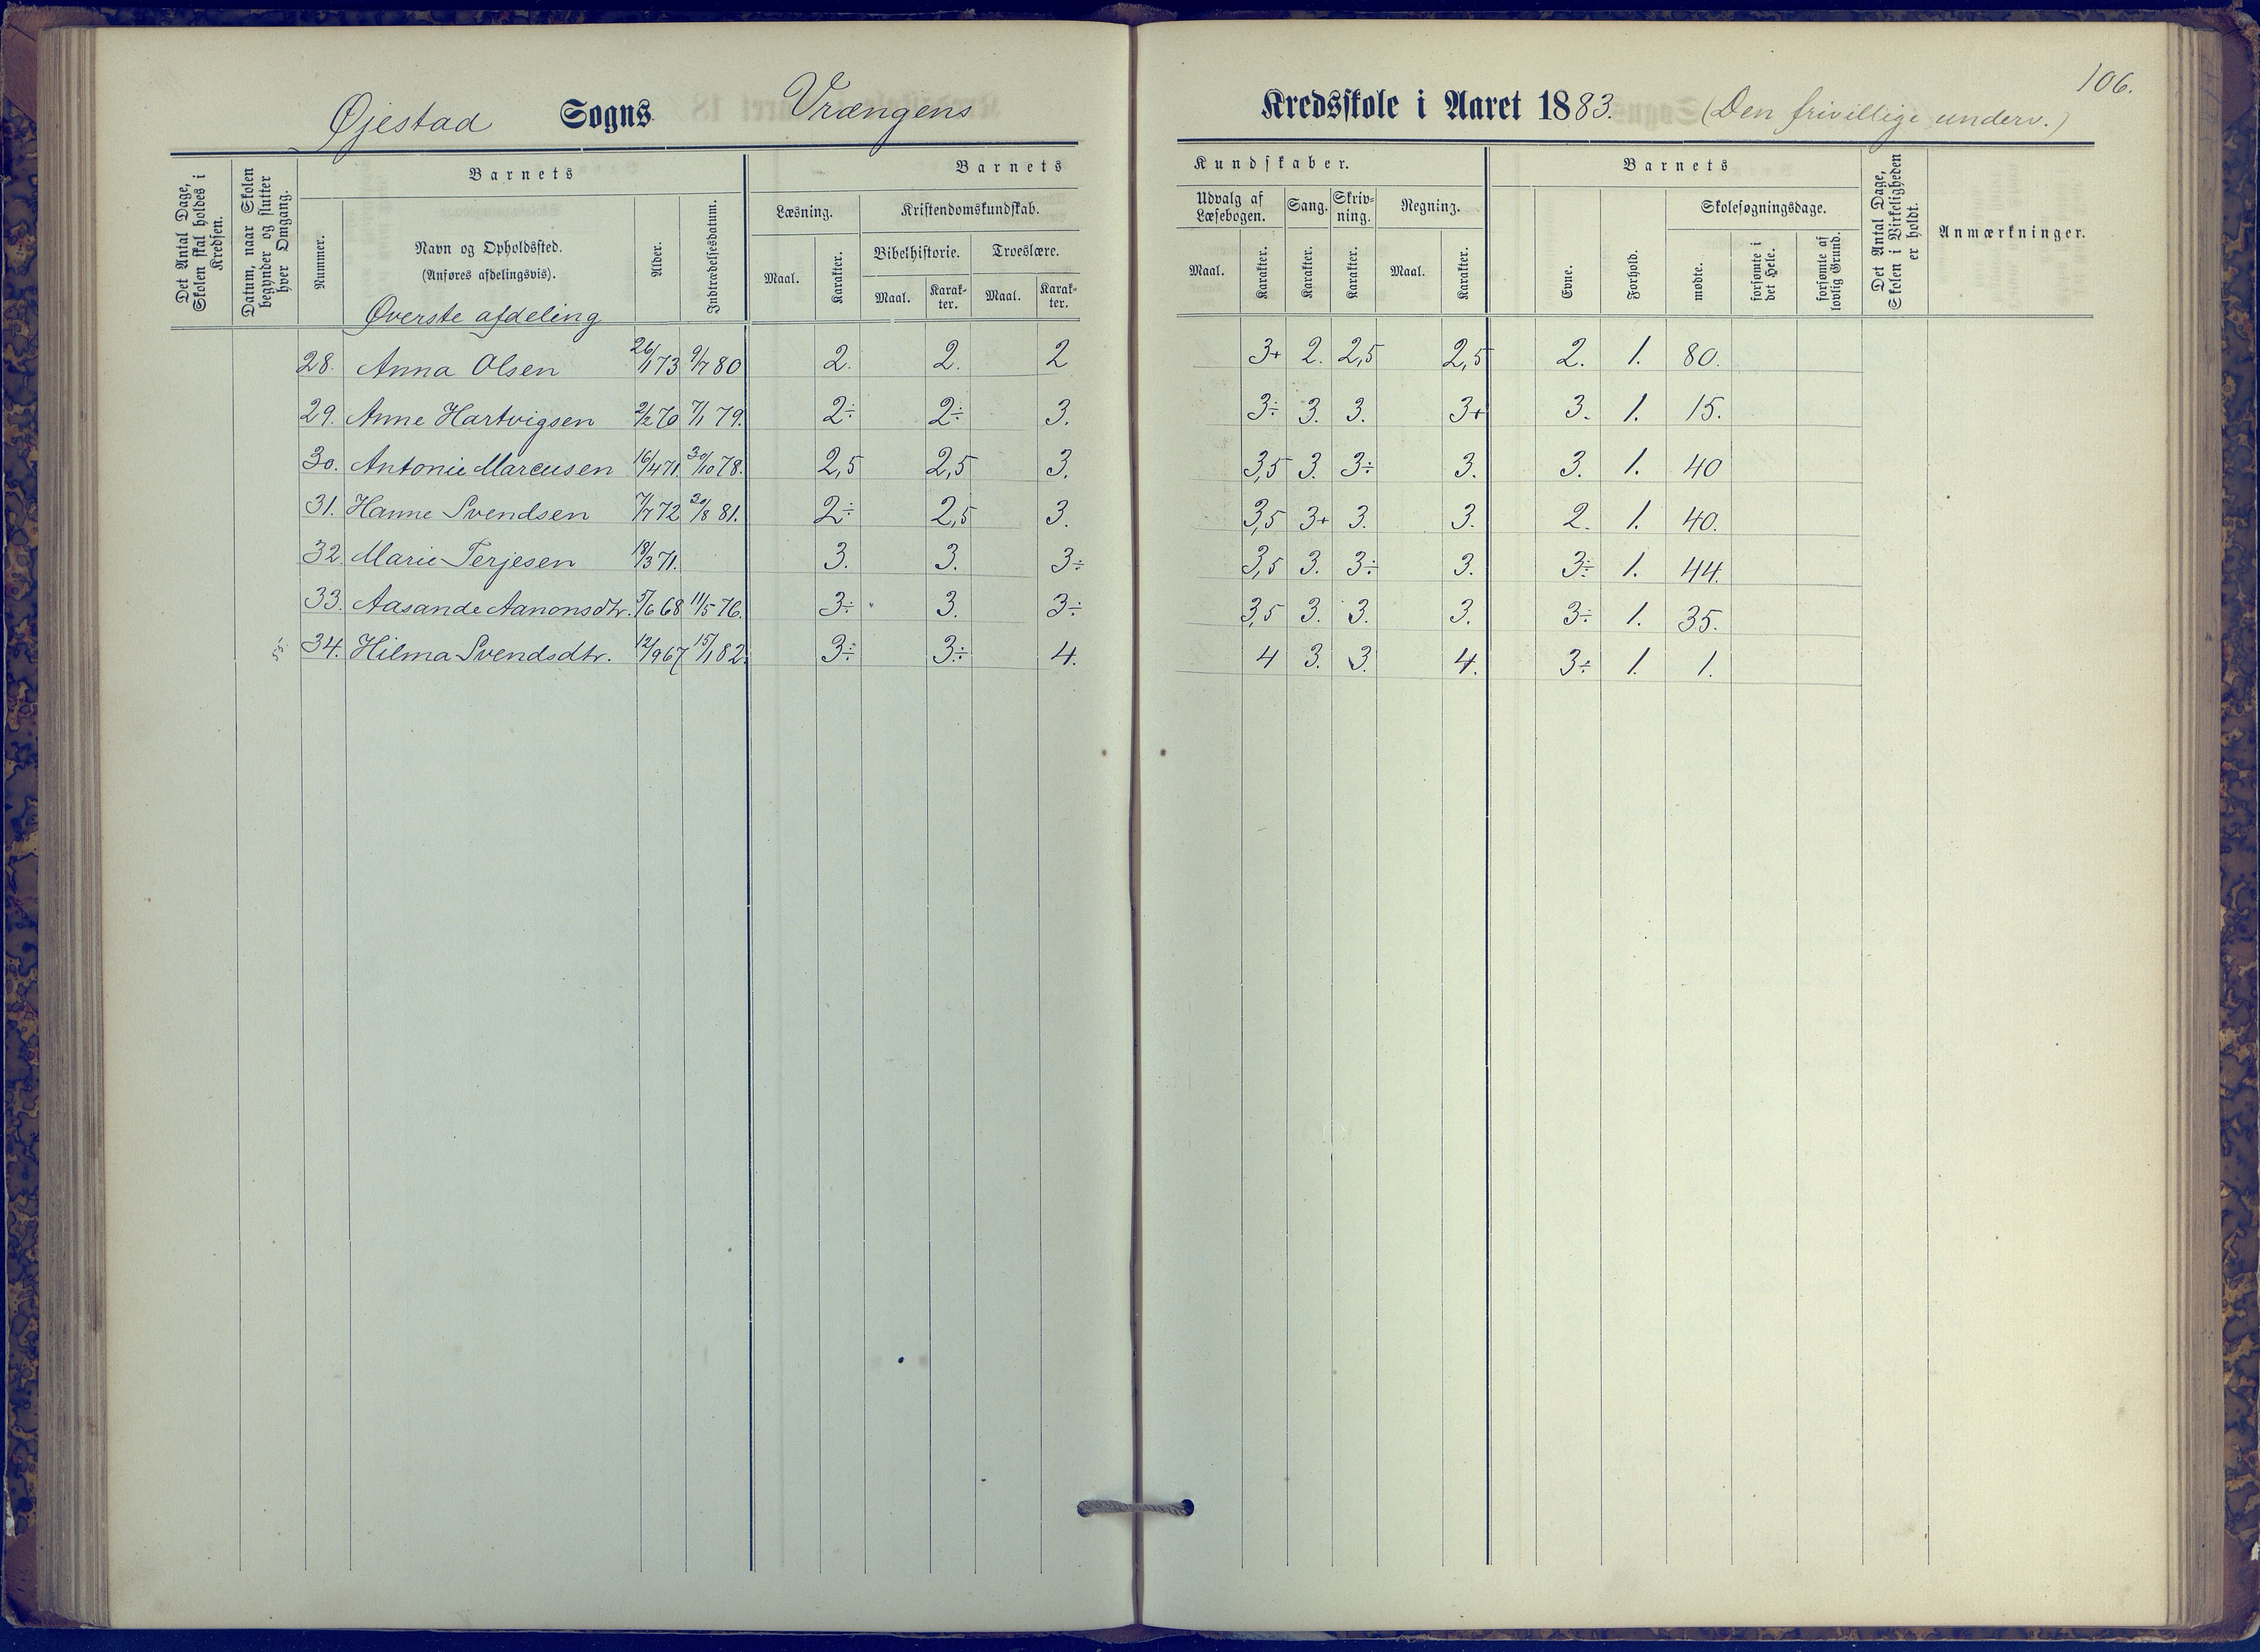 106.
Øjestad Sogns Vrængens Kredsskole i Aaret 1883. (Den frivillige underv.)
Det Antal Dage, Skolen skal holdes i Kredsen.
Datum, naar Skolen begynder og slutter hver Omgang.
Barnets
Nummer.
Navn og Opholdssted.
(Anføres afdelingsvis).
Øverste afdeling
Alder.
Indtrædelsesdatum.
Barnets Kundskaber.
Læsning.
Maal. Karakter.
Kristendomskundskab.
Bibelhistorie. Troeslære.
Maal. Karak-ter. Maal. Karak-ter.
Udvalg af Læsebogen.
Maal. Karakter.
Sang.
Karakter.
Skriv-ning.
Karakter.
Regning.
Maal. Karakter.
Barnets
Evne.
Forhold.
Skolesøgningsdage.
mødte.
forsømte i det Hele.
forsømte af lovlig Grund.
Det Antal Dage, Skolen i Virkeligheden er holdt.
Anmærkninger.
28. Anna Olsen 26/1 73 9/7 80 2. 2. 2 3+ 2. 2,5 2,5 2. 1. 80.
29. Anne Hartvigsen 2/2 70 7/1 79. 2÷ 2÷ 3. 3÷ 3. 3. 3+ 3. 1. 15.
30. Antonie Marcusen 16/4 71. 30/10 78. 2,5 2,5 3. 3,5 3. 3÷ 3. 3. 1. 40
31. Hanne Svendsen 7/7 72 30/8 81. 2÷ 2,5 3. 3,5 3+ 3. 3. 2. 1. 40.
32. Marie Terjesen 18/3 71. 3. 3. 3÷ 3,5 3. 3÷ 3. 3÷ 1. 44.
33. Aasande Aanonsdtr. 5/6 68 11/5 76. 3÷ 3. 3÷ 3,5 3. 3. 3. 3÷ 1. 35.
34. Hilma Svendsdtr. 12/9 67 15/1 82. 3÷ 3÷ 4. 4 3. 3. 4. 3÷ 1. 1.